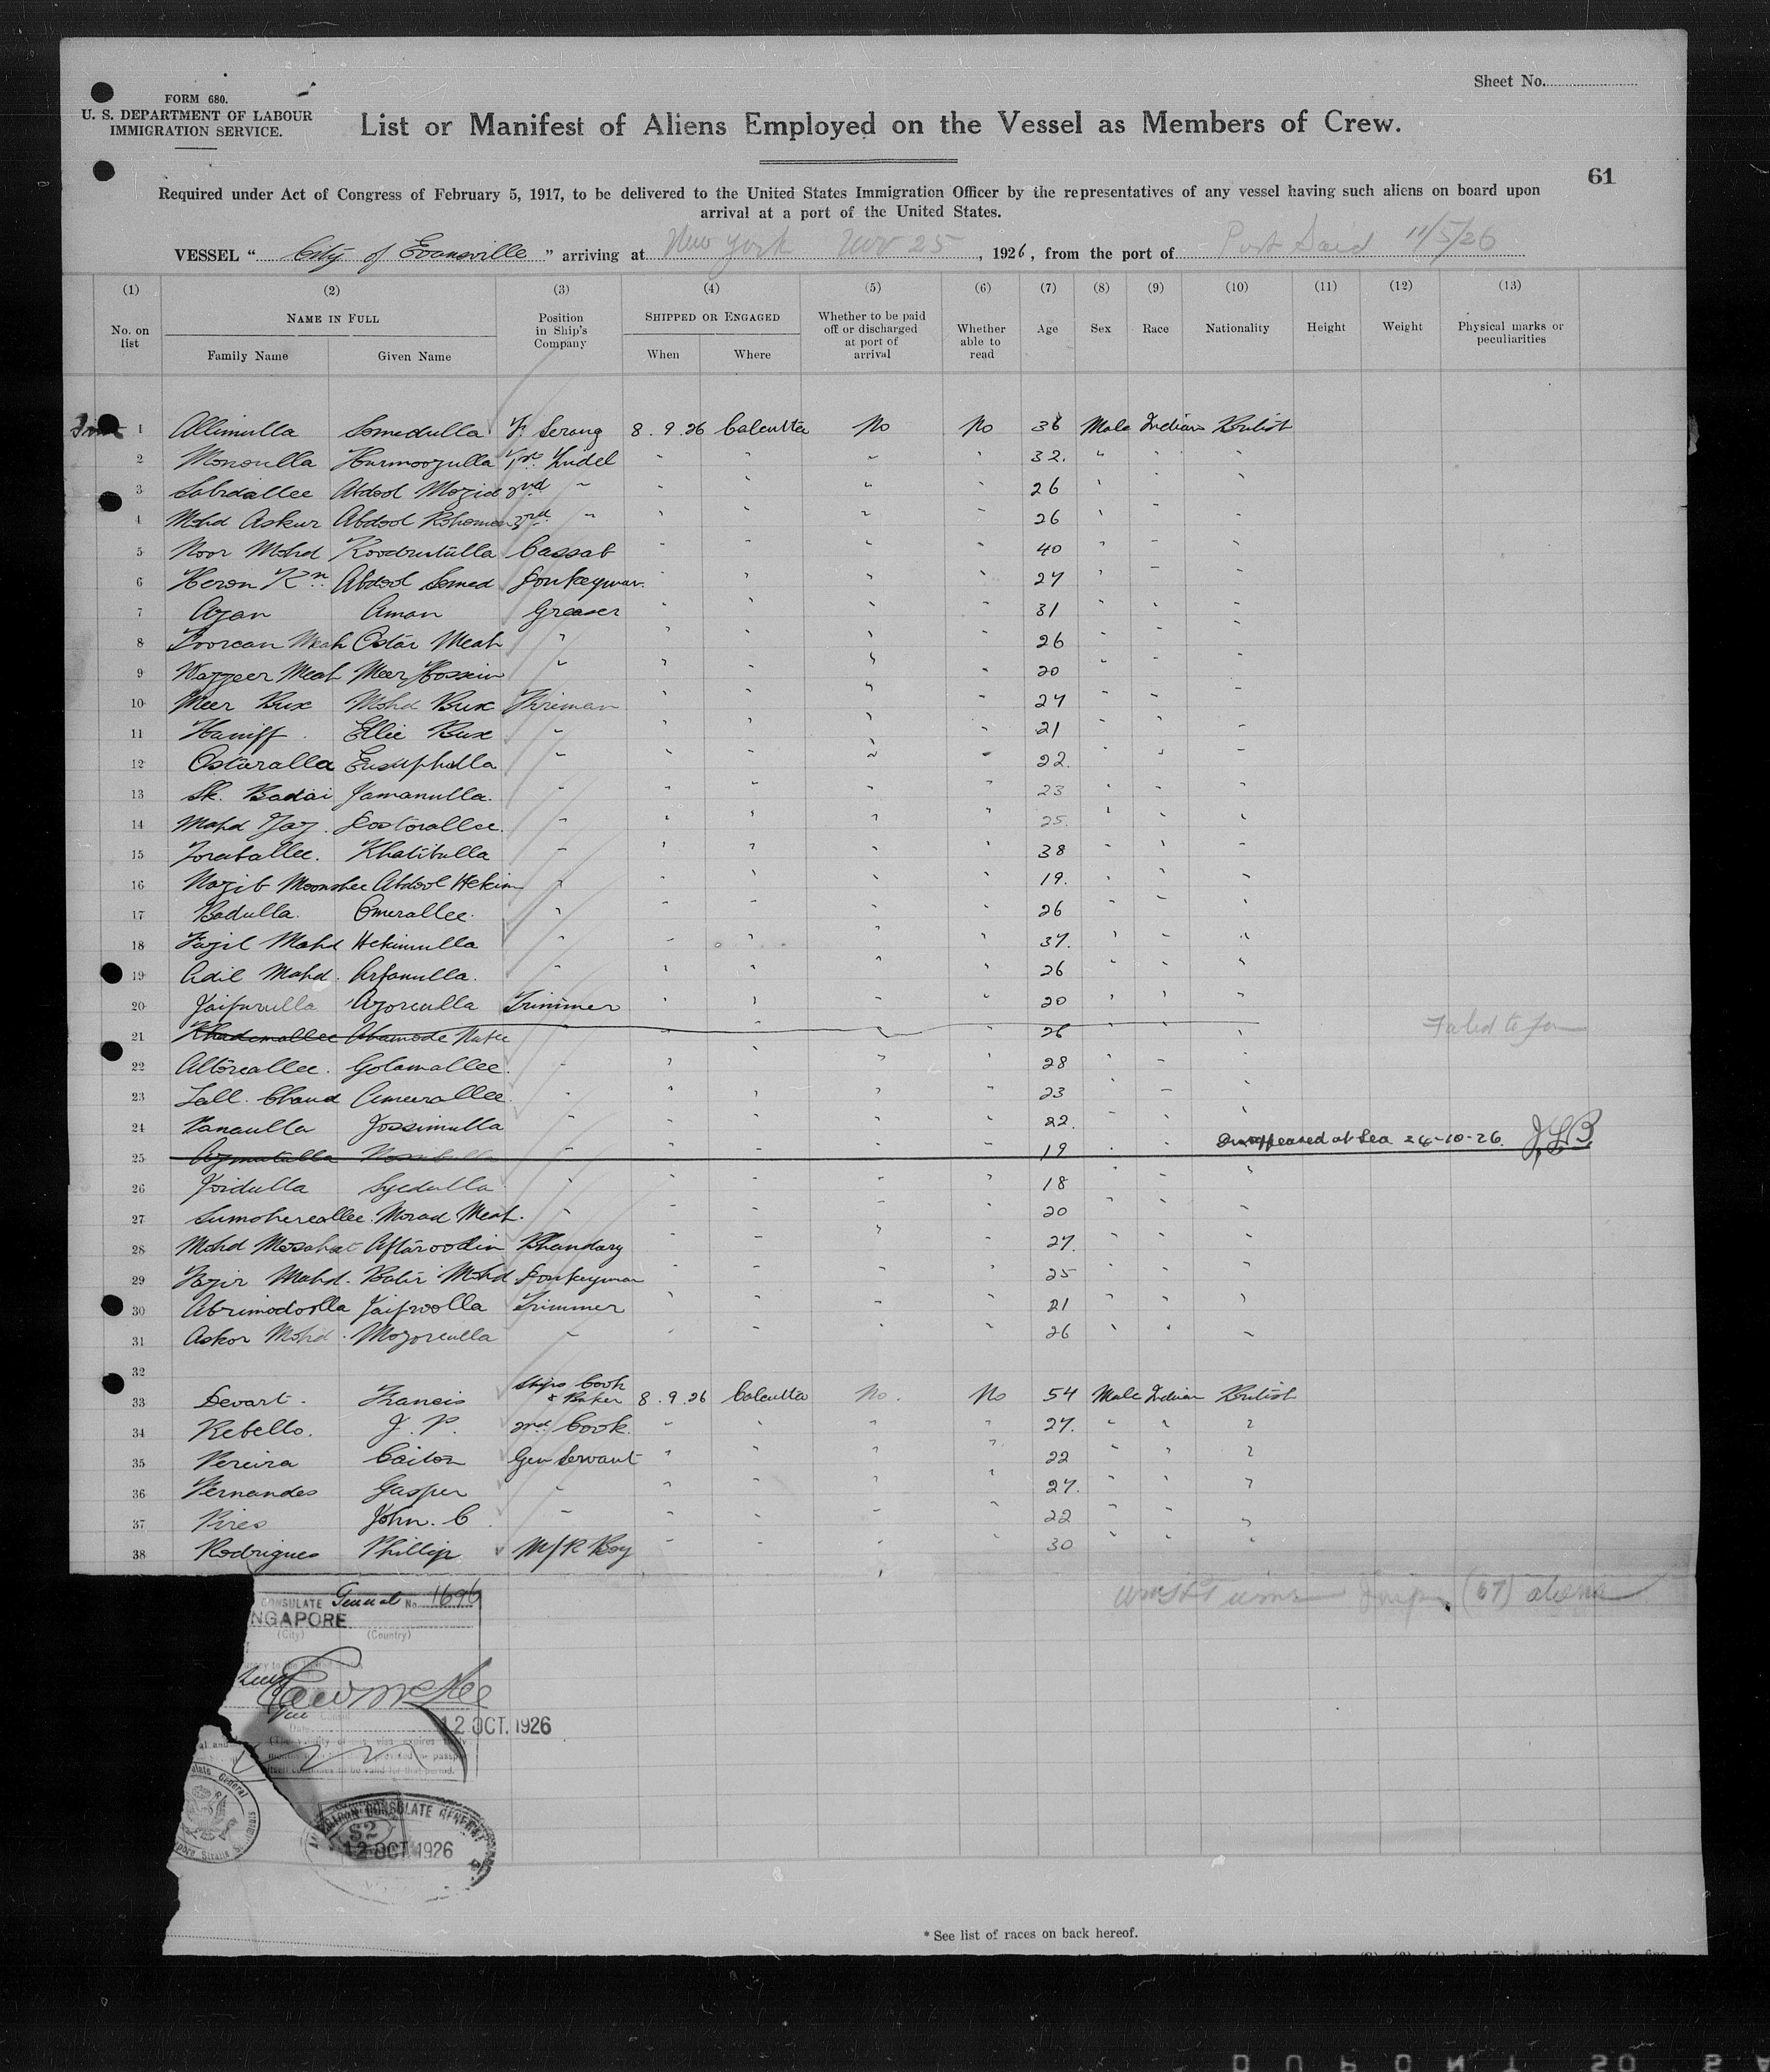 Sheet No.
FORM 680.
U. S. DEPARTMENT OF LABOUR
IMMIGRATION SERVICE.
List or Manifest of Aliens Employed on the Vessel as Members of Crew.
61
Required under Act of Congress of February 5, 1917, to be delivered to the United States Immigration Officer by the representatives of any vessel having such aliens on board upon
arrival at a port of the United States.
VESSEL “ City of Evansville ” arriving at New York Nov 25, 1926, from the port of Port Said 11/5/26
(1) (2) (3) (4) (5) (6) (7) (8) (9) (10) (11) (12) (13)
No. on list NAME IN FULL Family Name Given Name Position in Ship's Company SHIPPED OR ENGAGED When Where Whether to be paid off or discharged at port of arrival Whether able to read Age Sex Race Nationality Height Weight Physical marks or peculiarities
1 Allimulla Somedulla F. Serang 8.9.26 Calcutta No No 36 Male Indian British
2 Monorulla Hurmoozulla 1st Tindel " " " " 32. " " "
3 Sabidallee Abdool Mozid 2nd " " " " " 26 " " "
4 Mohd Askur Abdool Rohoman 3rd " " " " " 26 " " "
5 Noor Mohd Koodrutulla Cassab " " " " 40 " " "
6 Heron Kn Abdool Somed Donkeyman " " " " 27 " " "
7 Azan Aman Greaser " " " " 31 " " "
8 Meah Ostar Meah " " " " " 26 " " "
9 Wazzeer Meah Meer Hossein " " " " " 20 " " "
10 Meer Bux Mohd Bux Fireman " " " " 24 " " "
11 Haniff Ellie Bux " " " " " 21 " " "
12 Osturalla Eusuphulla " " " " " 22. " " "
13 Sk. Badai Jamanulla. " " " " " 23 " " "
14 Mohd Dostorallee. " " " " " 25. " " "
15 Toraballee. Khatibulla " " " " " 38 " " "
16 Nazib Moonshee Abdool Hekim " " " " " 19. " " "
17 Badulla. Omerallee. " " " " " 26 " " "
18 Fazil Mohd Hekimulla " " " " " 37. " " "
19 Adil Mohd. Arfanulla. " " " " " 26 " " "
20 Joifurulla Azoreulla Trimmer " " " " 20 " " "
21 Khademallee " " " " " 26 " " " Failed to join
22 Altoreallee. Golamallee. " " " " " 28 " " "
23 Lall. Chand Ameerallee. " " " " " 23 " " "
24 Panaulla Jossimulla " " " " " 22. " " "
25 " " " " " 19 " " Disappeared at Sea 24-10-26. JLB
26 Joidulla Syedulla " " " " " 18 " " "
27 Sumohereallee. Morad Meah. " " " " " 20 " " "
28 Mohd Mosahat Aftaroodin Bhandary " " " " 27. " " "
29 Fazir Mohd. Babir Mohd Donkeyman " " " " 25 " " "
30 Abrimodoolla Joifroolla Trimmer " " " " 21 " " "
31 Askor Mohd. Mozoreulla " " " " " 26 " " "
32
33 Devart. Francis Ships Cook & Baker 8.9.26 Calcutta No. No 54 Male Indian British
34 Rebello. J. P. 2nd Cook. " " " " 27. " " "
35 Pereira Caiton Gen Servant " " " " 22 " " "
36 Fernandes Gasper " " " " " 27. " " "
37 Pires John. C. " " " " " 22 " " "
38 Rodrigues Phillip. M/R Boy " " " " 30 " " "
(67) aliens
CONSULATE General No. 1696
NGAPORE
(City) (Country)
12 OCT. 1926
AMERICAN CONSULATE GENERAL
S2
12 OCT 1926
* See list of races on back hereof.